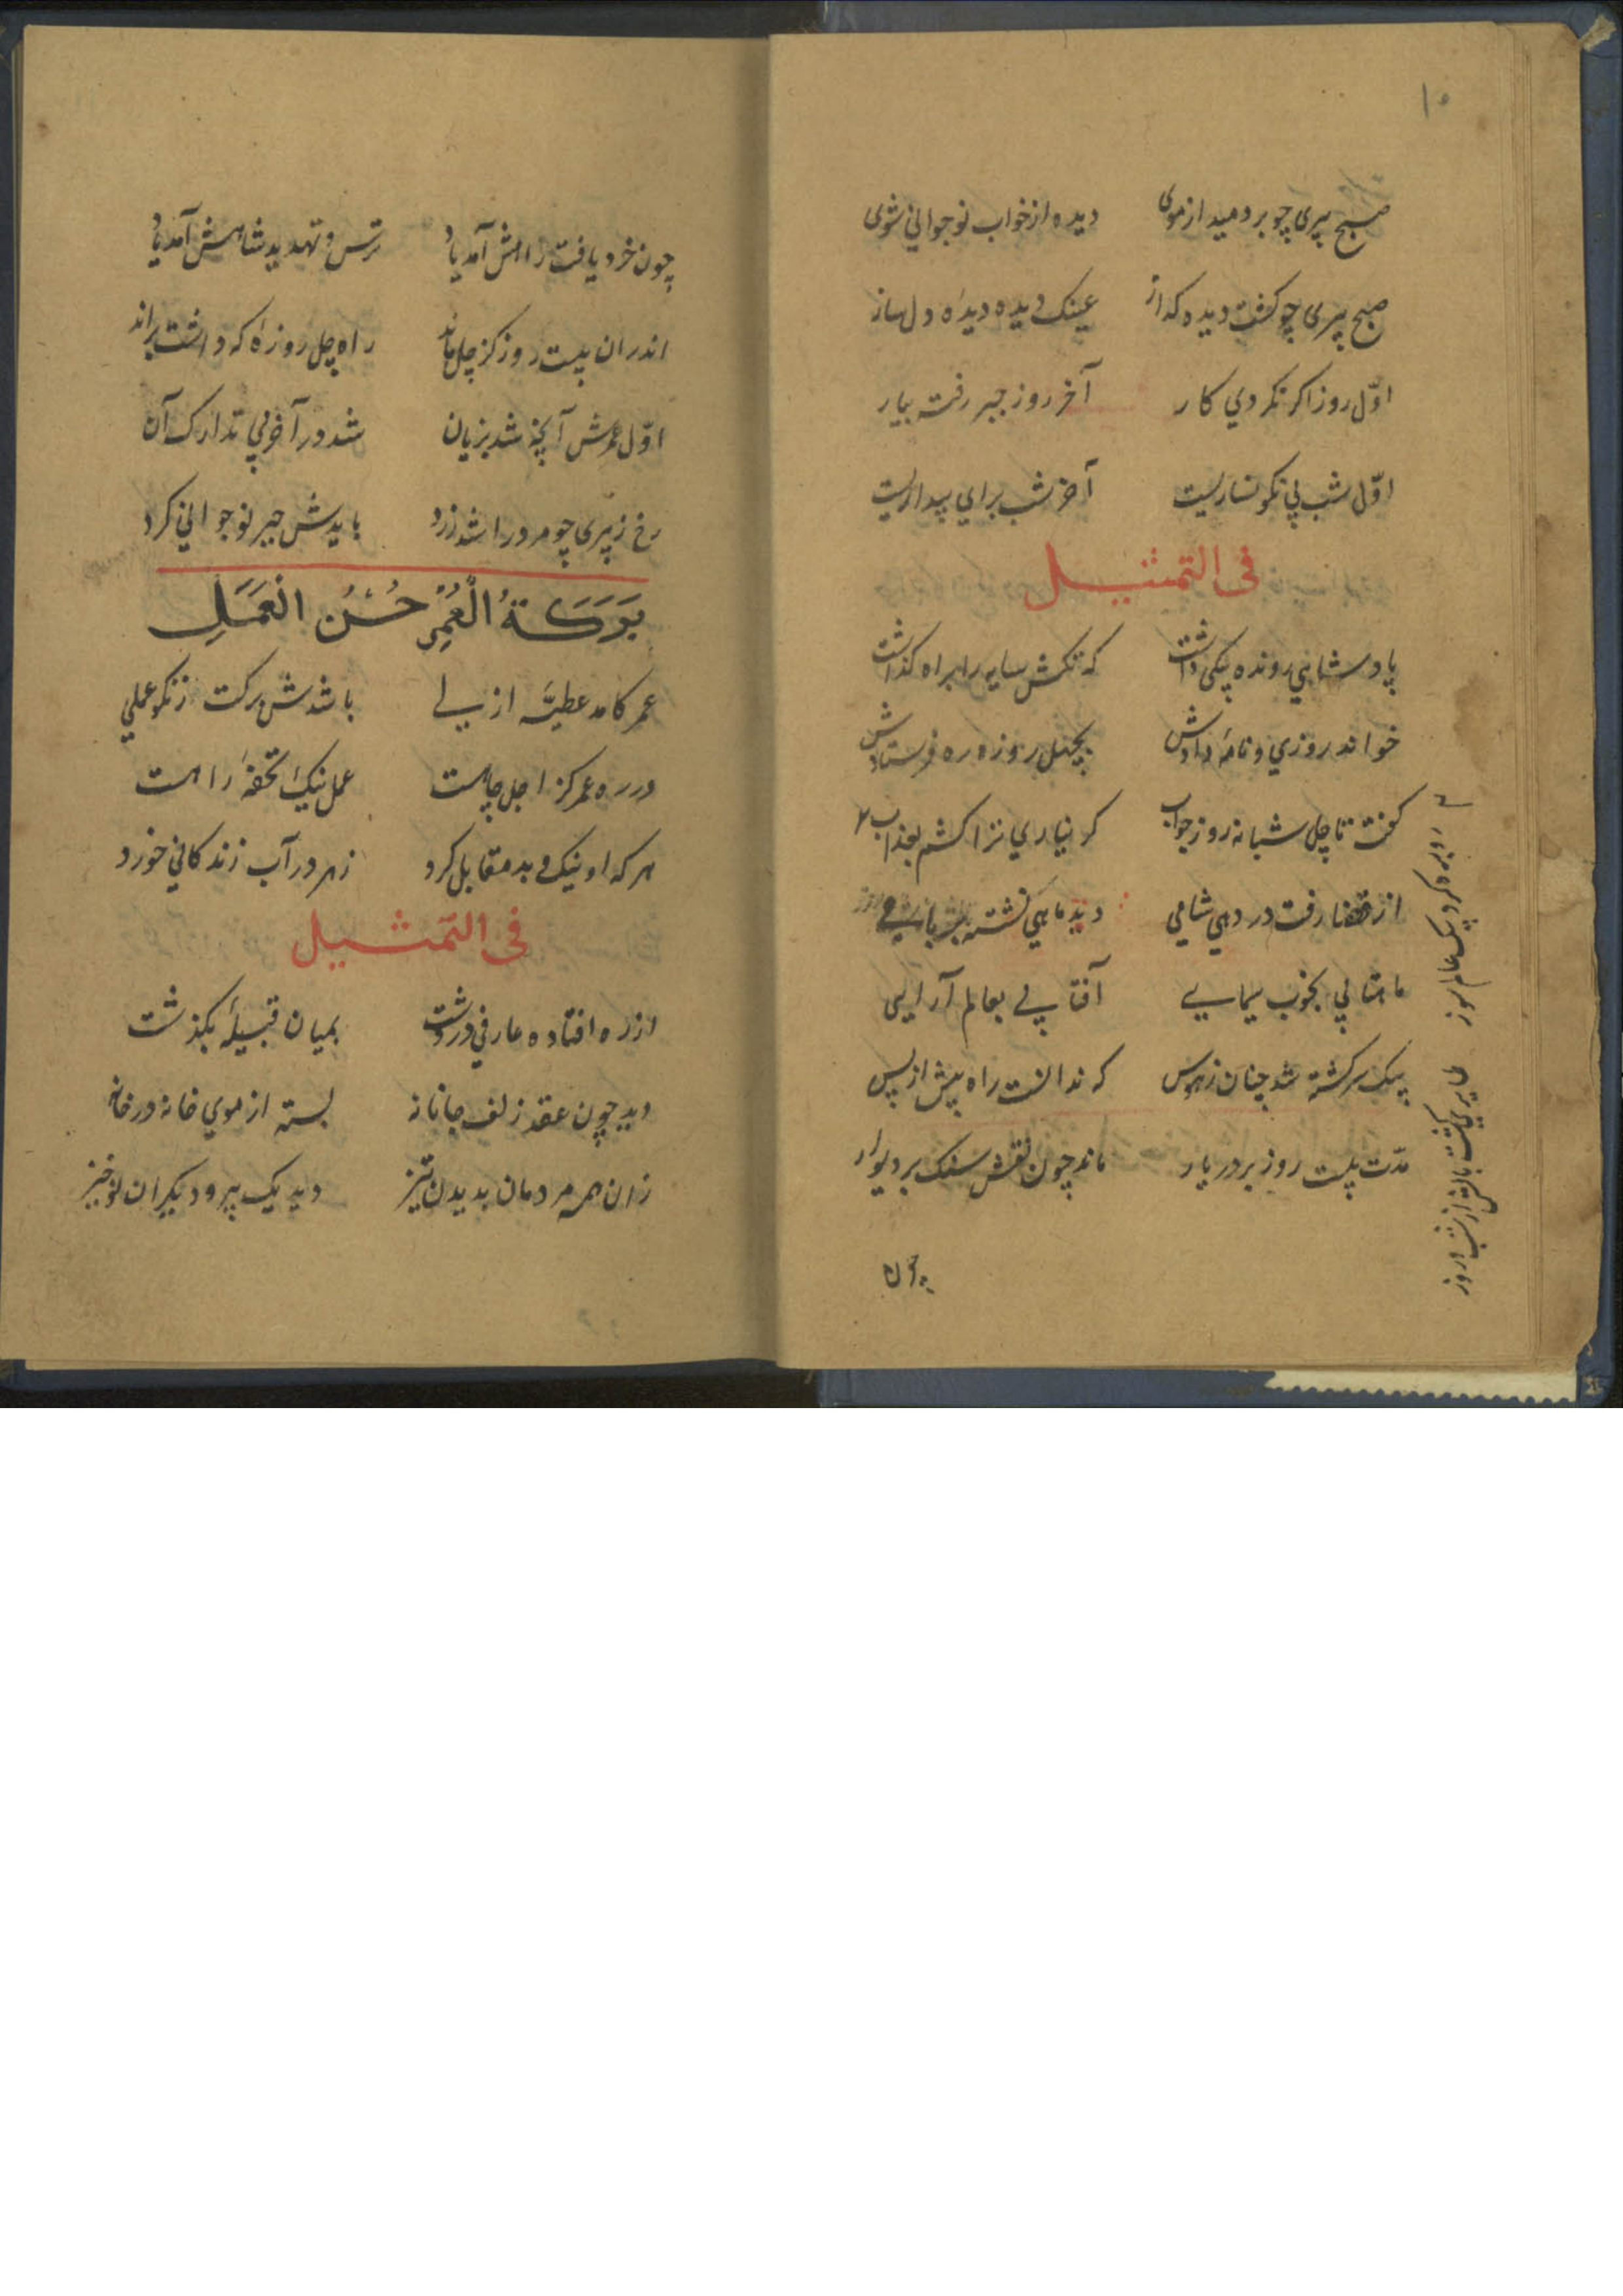 ۱۰
صبح پیری چو بر دمید از موی دیده از خواب نوجوانی شوی
صبح پیری چو کشت دیده کداز عینک دیده دیدهٔ دل ساز
اوّل روز اکر نکردي کار آخر روز جبر رفته بیار
اوّل شب پی نکونساریست آخر شب برای بیداریست
فی التمثیـــل
پادشاهي رونده پیکی داشت که تکش سایه را براه کذاشت
خواند روزي و نامهٔ دادش بچهل روزه ره فرستادش
کفت تا چل شبانه روز جواب کر نیاري ترا کشم بعذاب
از قضا رفت در دهي شامي دید ماهي نشسته بر بامي
ماهتابي بخوب سیمایي آفتابي بعالم آرایی
پیک سرکشته شد چنان ز هوس که ندانست راه پیش از پس
مدّت بیست روز بر در یار ماند چون نقش سنک بر دیوار
چون
چون خرد یافت زامش آمد یاد ترس و تهدید شاهش آمد یاد
اندران بیست روز کز چل ماند راه چل روزهٔ که داشت براند
اوّل عمرش آنچه شد بزیان شد در آخر پي تدارک آن
رخ ز پیری چو مرد را شد زرد بایدش جبر نوجوانی کرد
بَرَکَةُ الْعُمْرِ حُسْنُ الْعَمَلِ
عمر کامد عطیّه ازلي باشدش برکت ز نکو عملي
در ره عمر کز اجل چاهست عمل نیک تحفهٔ راهست
هر که او نیک و بد مقابل کرد زهر در آب زندکاني خورد
فی التَمـــثیل
از ره افتاده عارفي در دشت بمیان قبیلهٔ بکذشت
دید چون عقد زلف جانانه بسته از موي خانه در خانه
زان همه مردمان بدیدن تیز دید یک پیر و دیکران نوخیز